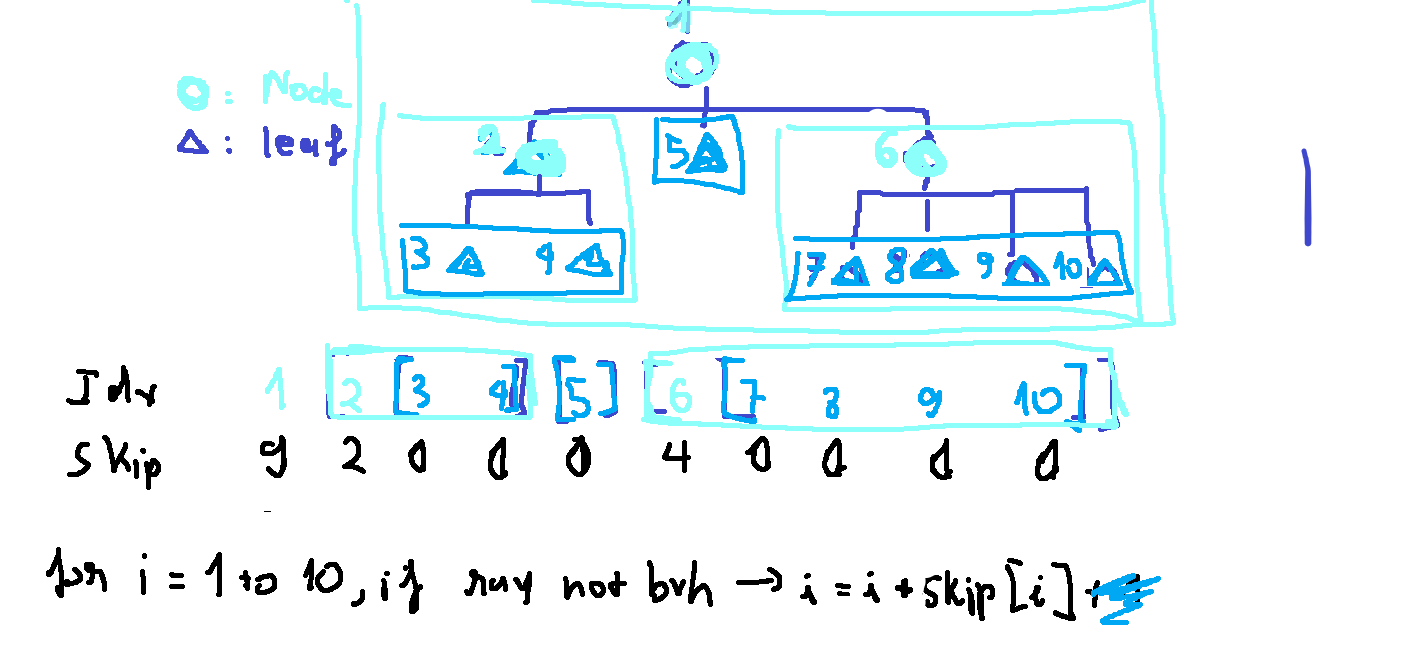 1
: Node
: leaf
2 5 6
3 4 7 8 9 10
Idx 1 [2 [3 4]] [5] [6 [7 8 9 10]]
Skip 9 2 0 0 0 4 0 0 0 0
for i = 1 to 10, if ray not bvh → i = i + skip[i] +